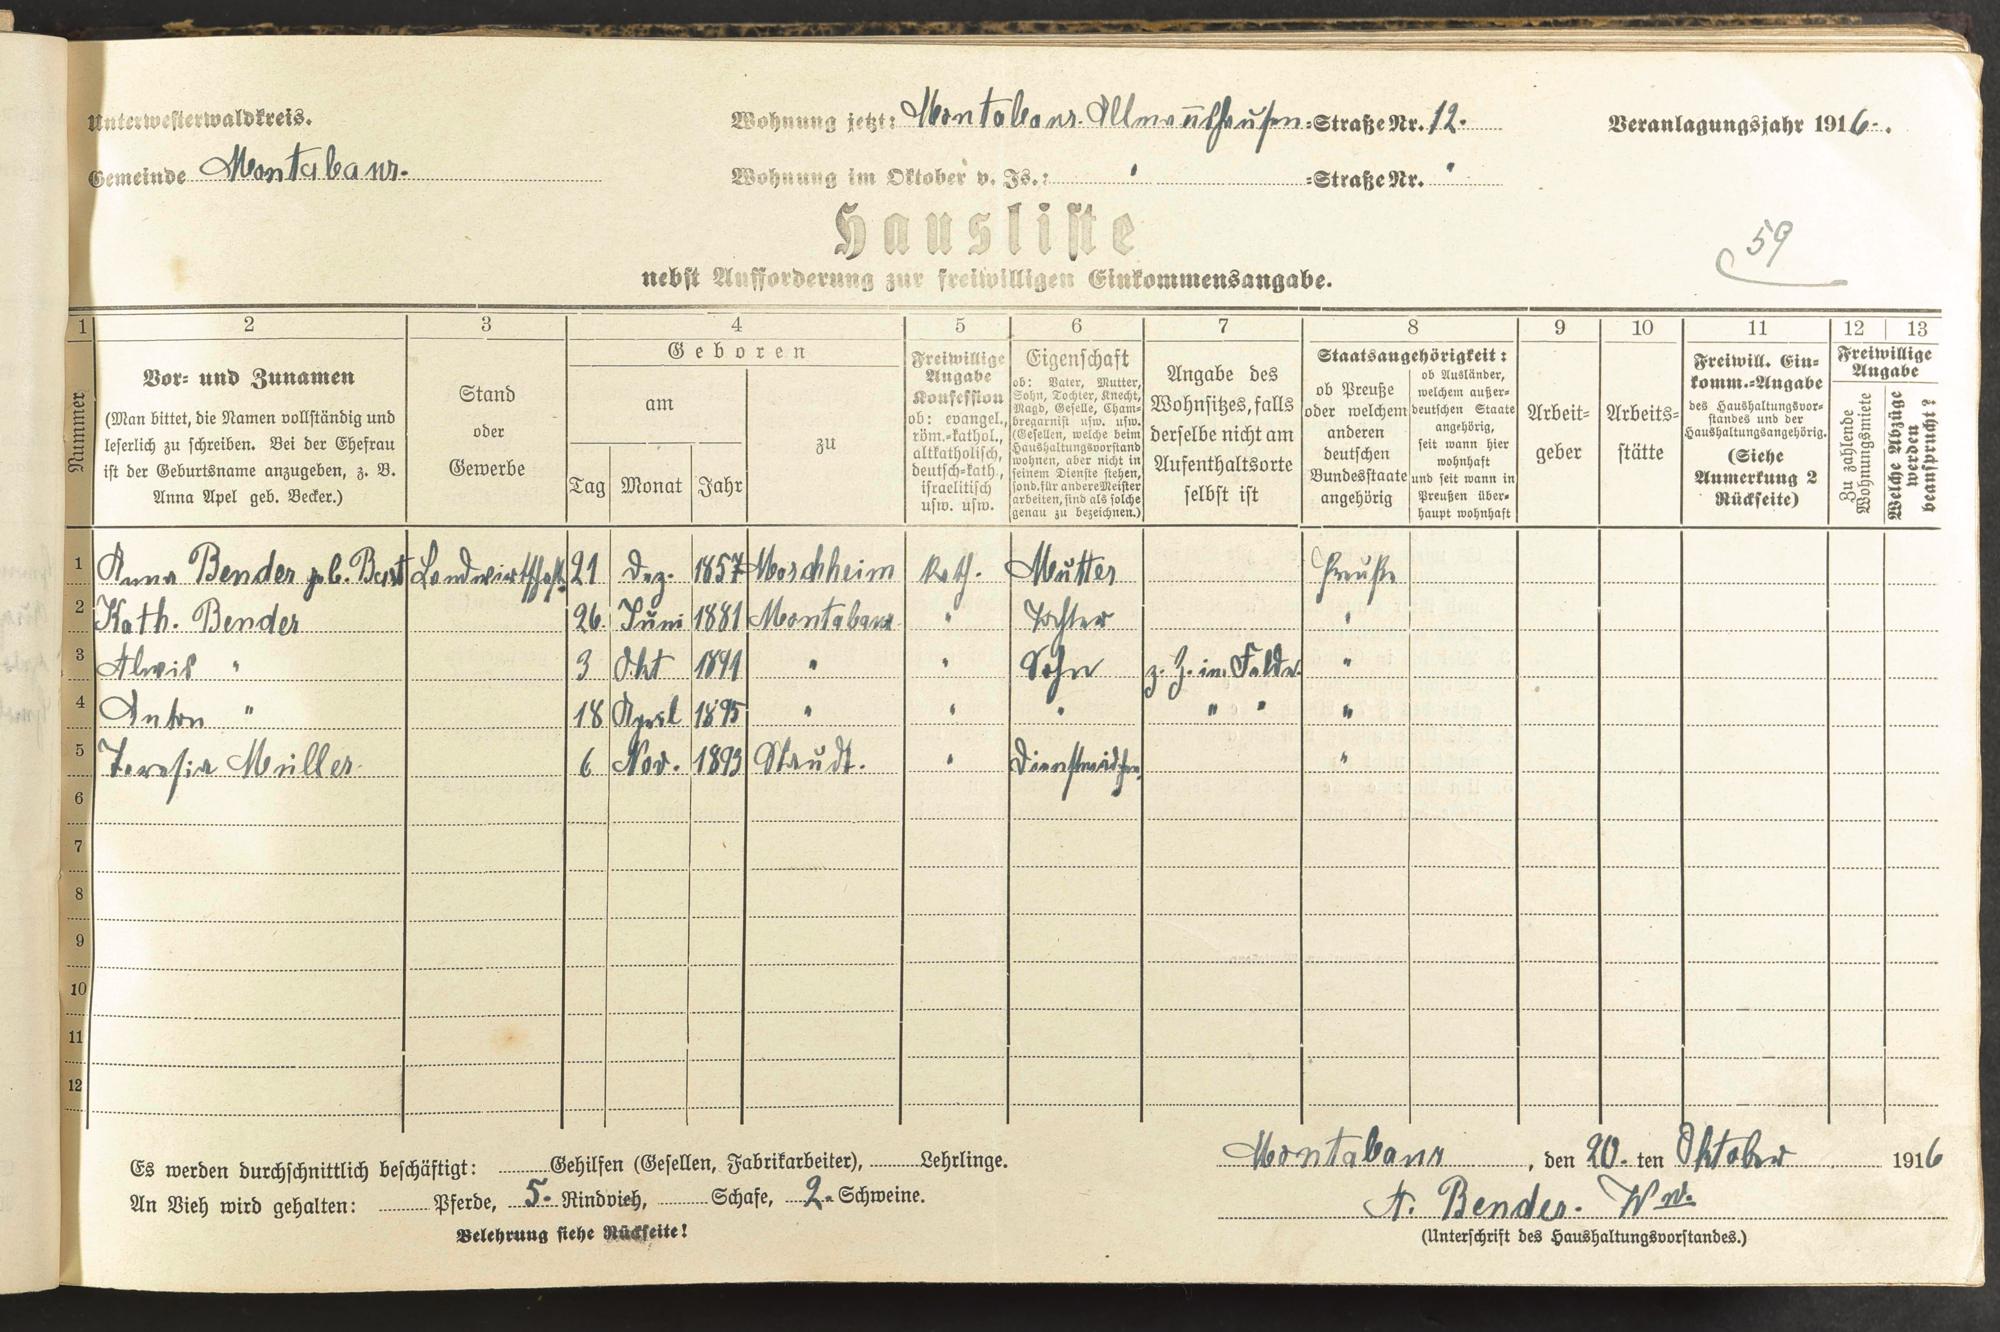 Unterwesterwaldkreis.
Gemeinde Montabaur.
Wohnung jetzt: Montabaur. Allmannshausen=Straße Nr. 12.
Wohnung im Oktober v. Js.: " =Straße Nr. "
Veranlagungsjahr 1916.
Hausliste
nebst Aufforderung zur freiwilligen Einkommensangabe.
59
1 2 3 4 5 6 7 8 9 10 11 12 13
Nummer
Vor= und Zunamen
(Man bittet, die Namen vollständig und
leserlich zu schreiben. Bei der Ehefrau
ist der Geburtsname anzugeben, z. B.
Anna Apel geb. Becker.)
Stand
oder
Gewerbe
Geboren
am
Tag Monat Jahr
zu
Freiwillige
Angabe
Konfession
ob: evangel.,
röm.=kathol.,
altkatholisch,
deutsch=kath.,
israelitisch
usw. usw.
Eigenschaft
ob: Vater, Mutter,
Sohn, Tochter, Knecht,
Magd, Geselle, Cham=
bregarnist usw. usw.
(Gesellen, welche beim
Haushaltungsvorstand
wohnen, aber nicht in
seinem Dienste stehen,
sond. für andere Meister
arbeiten, sind als solche
genau zu bezeichnen.)
Angabe des
Wohnsitzes, falls
derselbe nicht am
Aufenthaltsorte
selbst ist
Staatsangehörigkeit:
ob Preuße
oder welchem
anderen
deutschen
Bundesstaate
angehörig
ob Ausländer,
welchem außer=
deutschen Staate
angehörig,
seit wann hier
wohnhaft
und seit wann in
Preußen über=
haupt wohnhaft
Arbeit=
geber
Arbeits=
stätte
Freiwill. Ein=
komm.=Angabe
des Haushaltungsvor=
standes und der
Haushaltungsangehörig.
(Siehe
Anmerkung 2
Rückseite)
Freiwillige
Angabe
Zu zahlende
Wohnungsmiete
Welche Abzüge
werden
beansprucht?
1 Anna Bender geb. Bast Landwirtschaft 21 Dez. 1857 Moschheim Kath. Mutter Preuße
2 Kath. Bender 26. Juni 1881 Montabaur " Tochter "
3 Alois " 3 Okt 1891 " " Sohn z. Z. im Felde "
4 Anton " 18 April 1895 " " " " " "
5 Teresia Müller 6 Nov. 1893 Staudt. " Dienstmädchen "
6
7
8
9
10
11
12
Es werden durchschnittlich beschäftigt: Gehilfen (Gesellen, Fabrikarbeiter), Lehrlinge.
An Vieh wird gehalten: Pferde, 5 Rindvieh, Schafe, 2 Schweine.
Belehrung siehe Rückseite!
Montabaur, den 20. ten Oktober 1916
A. Bender. Ww.
(Unterschrift des Haushaltungsvorstandes.)